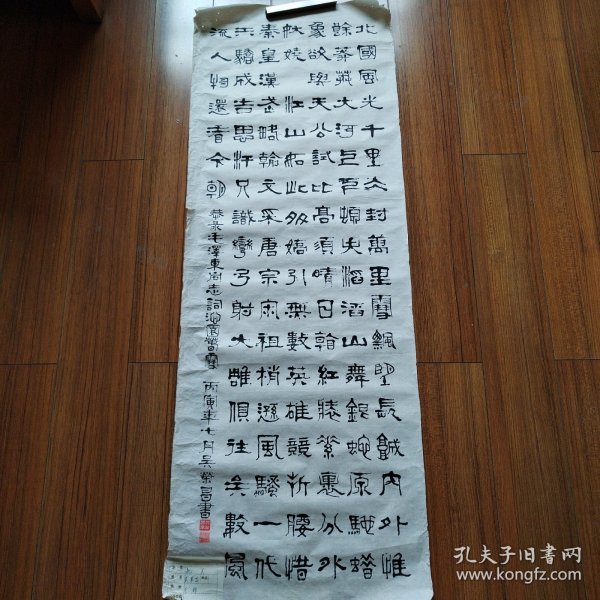 北國風光千里冰封萬里雪飄望長城內外惟
餘莽莽大河上下頓失滔滔山舞銀蛇原馳蠟
象欲與天公試比高須晴日看紅裝素裹分外
妖嬈江山如此多嬌引無數英雄競折腰惜
秦皇漢武略輸文采唐宗宋祖稍遜風騷一代
天驕成吉思汗只識彎弓射大雕俱往矣數風
流人物還看今朝 恭录毛澤東同志詞沁園春雪 丙寅年七月吳榮昌書
孔夫子旧书网
www.kongfz.com